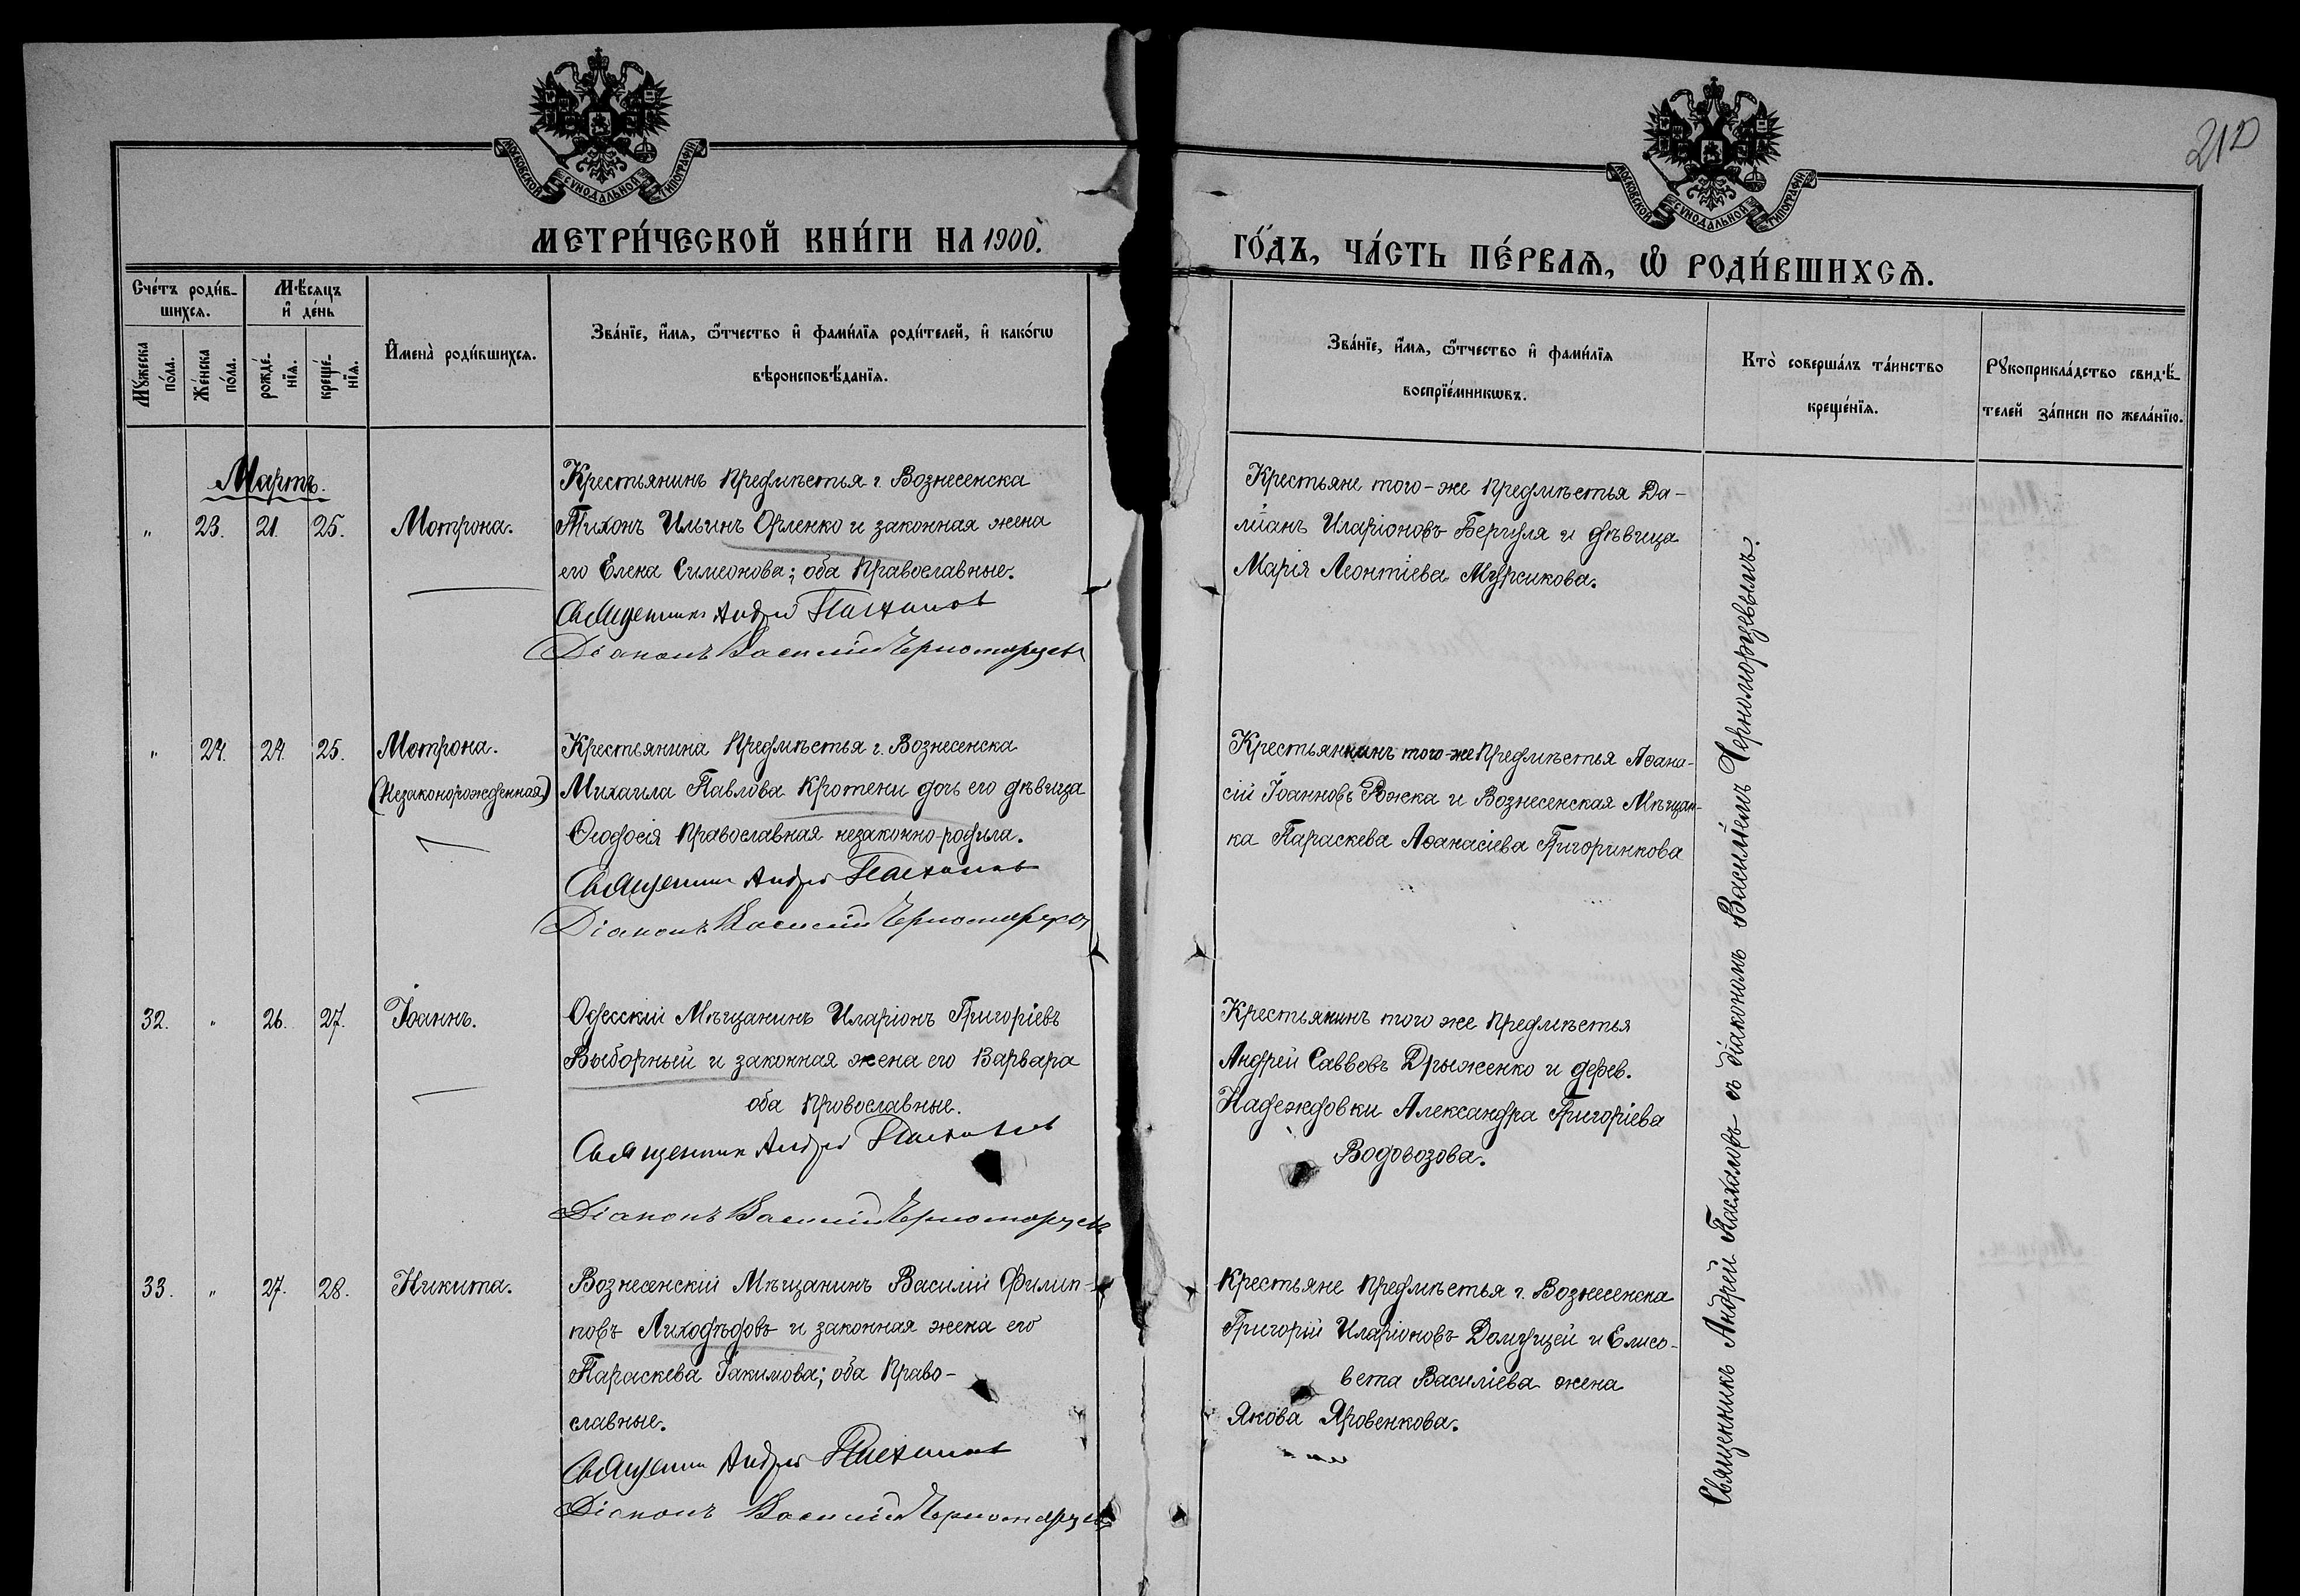 МОСКОВСКОЙ СѴНОДАЛЬНОЙ ТИПОГРАФІИ
МОСКОВСКОЙ СѴНОДАЛЬНОЙ ТИПОГРАФІИ
210
МЕТРИ́ЧЕСКОЙ КНИ́ГИ НА 1900.
ГО́ДЪ, ЧА́СТЬ ПЕ́РВАѦ, Ѡ҆ РОДИ́ВШИХСѦ.
Сче́тъ роди́в-
шихсѧ.
Мѣ́сѧцъ
и҆ де́нь
Мꙋ́жеска
по́ла.
Же́нска
по́ла.
рожде́-
нїѧ.
креще́-
нїѧ.
И҆мена̀ роди́вшихсѧ.
Зва́нїе, и҆́мѧ, ѻ҆́тчество и҆ фами́лїѧ роди́телей, и҆ како́гѡ
вѣроисповѣ́данїѧ.
Зва́нїе, и҆́мѧ, ѻ҆́тчество и҆ фами́лїѧ
воспрїе́мникѡвъ.
Кто̀ соверша́лъ та́инство
креще́нїѧ.
Рꙋкоприкла́дство свидѣ́-
телей за́писи по жела́нїю.
Мартъ.
" 23. 21. 25. Мотрона.
Крестьянинъ предмѣстья г. Вознесенска
Тихонъ Ильинъ Орленко и законная жена
его Елена Симеонова; оба православные.
Священникъ Андрей Пасхаловъ
Діаконъ Василій Черноморцевъ
Крестьяне того-же предмѣстья Да-
міанъ Иларіоновъ Бергуля и дѣвица
Марія Леонтіева Мурсикова.
" 24. 24. 25. Мотрона.
(Незаконорожденная)
Крестьянина предмѣстья г. Вознесенска
Михаила Павлова Кротени дочь его дѣвица
Ѳеодосія православная незаконно-родила.
Священникъ Андрей Пасхаловъ
Діаконъ Василій Черноморцевъ
Крестьянинъ того-же предмѣстья Аѳана-
сій Іоанновъ Рожка и Вознесенская Мѣщан-
ка Параскева Аѳанасіева Григоринкова
32. " 26. 27. Іоаннъ.
Одесскій Мѣщанинъ Иларіонъ Григоріевъ
Выборный и законная жена его Варвара
оба провославные.
Священникъ Андрей Пасхаловъ
Діаконъ Василій Черноморцевъ
Крестьянинъ того же предмѣстья
Андрей Саввовъ Дрыженко и дерев.
Надеждовки Александра Григоріева
Водовозова.
33. " 27. 28. Никита.
Вознесенскій Мѣщанинъ Василій Филип-
повъ Лиходѣдовъ и законная жена его
Параскева Іакимова; оба право-
славные.
Священникъ Андрей Пасхаловъ
Діаконъ Василій Черноморцевъ
Крестьяне предмѣстья г. Вознесенска
Григорій Иларіоновъ Домущей и Елисо-
вета Василіева жена
Якова Яровенкова.
Священникъ Андрей Пасхаловъ съ діакономъ Василіемъ Черноморцевымъ.